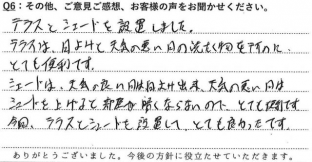 Q6：その他、ご意見ご感想、お客様の声をお聞かせください。
テラスとシェードを設置しました。
テラスは、日よけと天気の悪い日の洗たく物を干すのに、
とても便利です。
シェードは、天気の良い日は日よけ出来、天気の悪い日は
シェードを上げると部屋が暗くならないので、とても便利です
今回、テラスとシェードを設置して、とても良かったです。
ありがとうございました。今後の方針に役立たせていただきます。